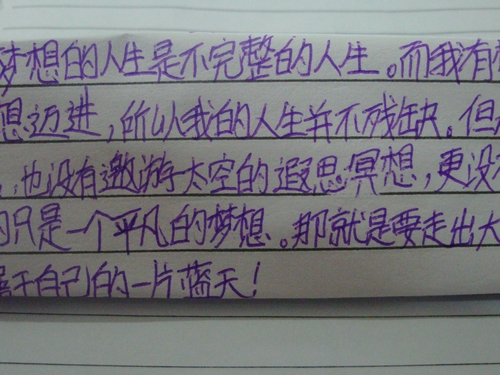 梦想的人生是不完整的人生。而我有
想迈进,所以我的人生并不残缺。但
,也没有遨游太空的遐思冥想,更没
的只是一个平凡的梦想。那就是要走出大
属于自己的一片蓝天!